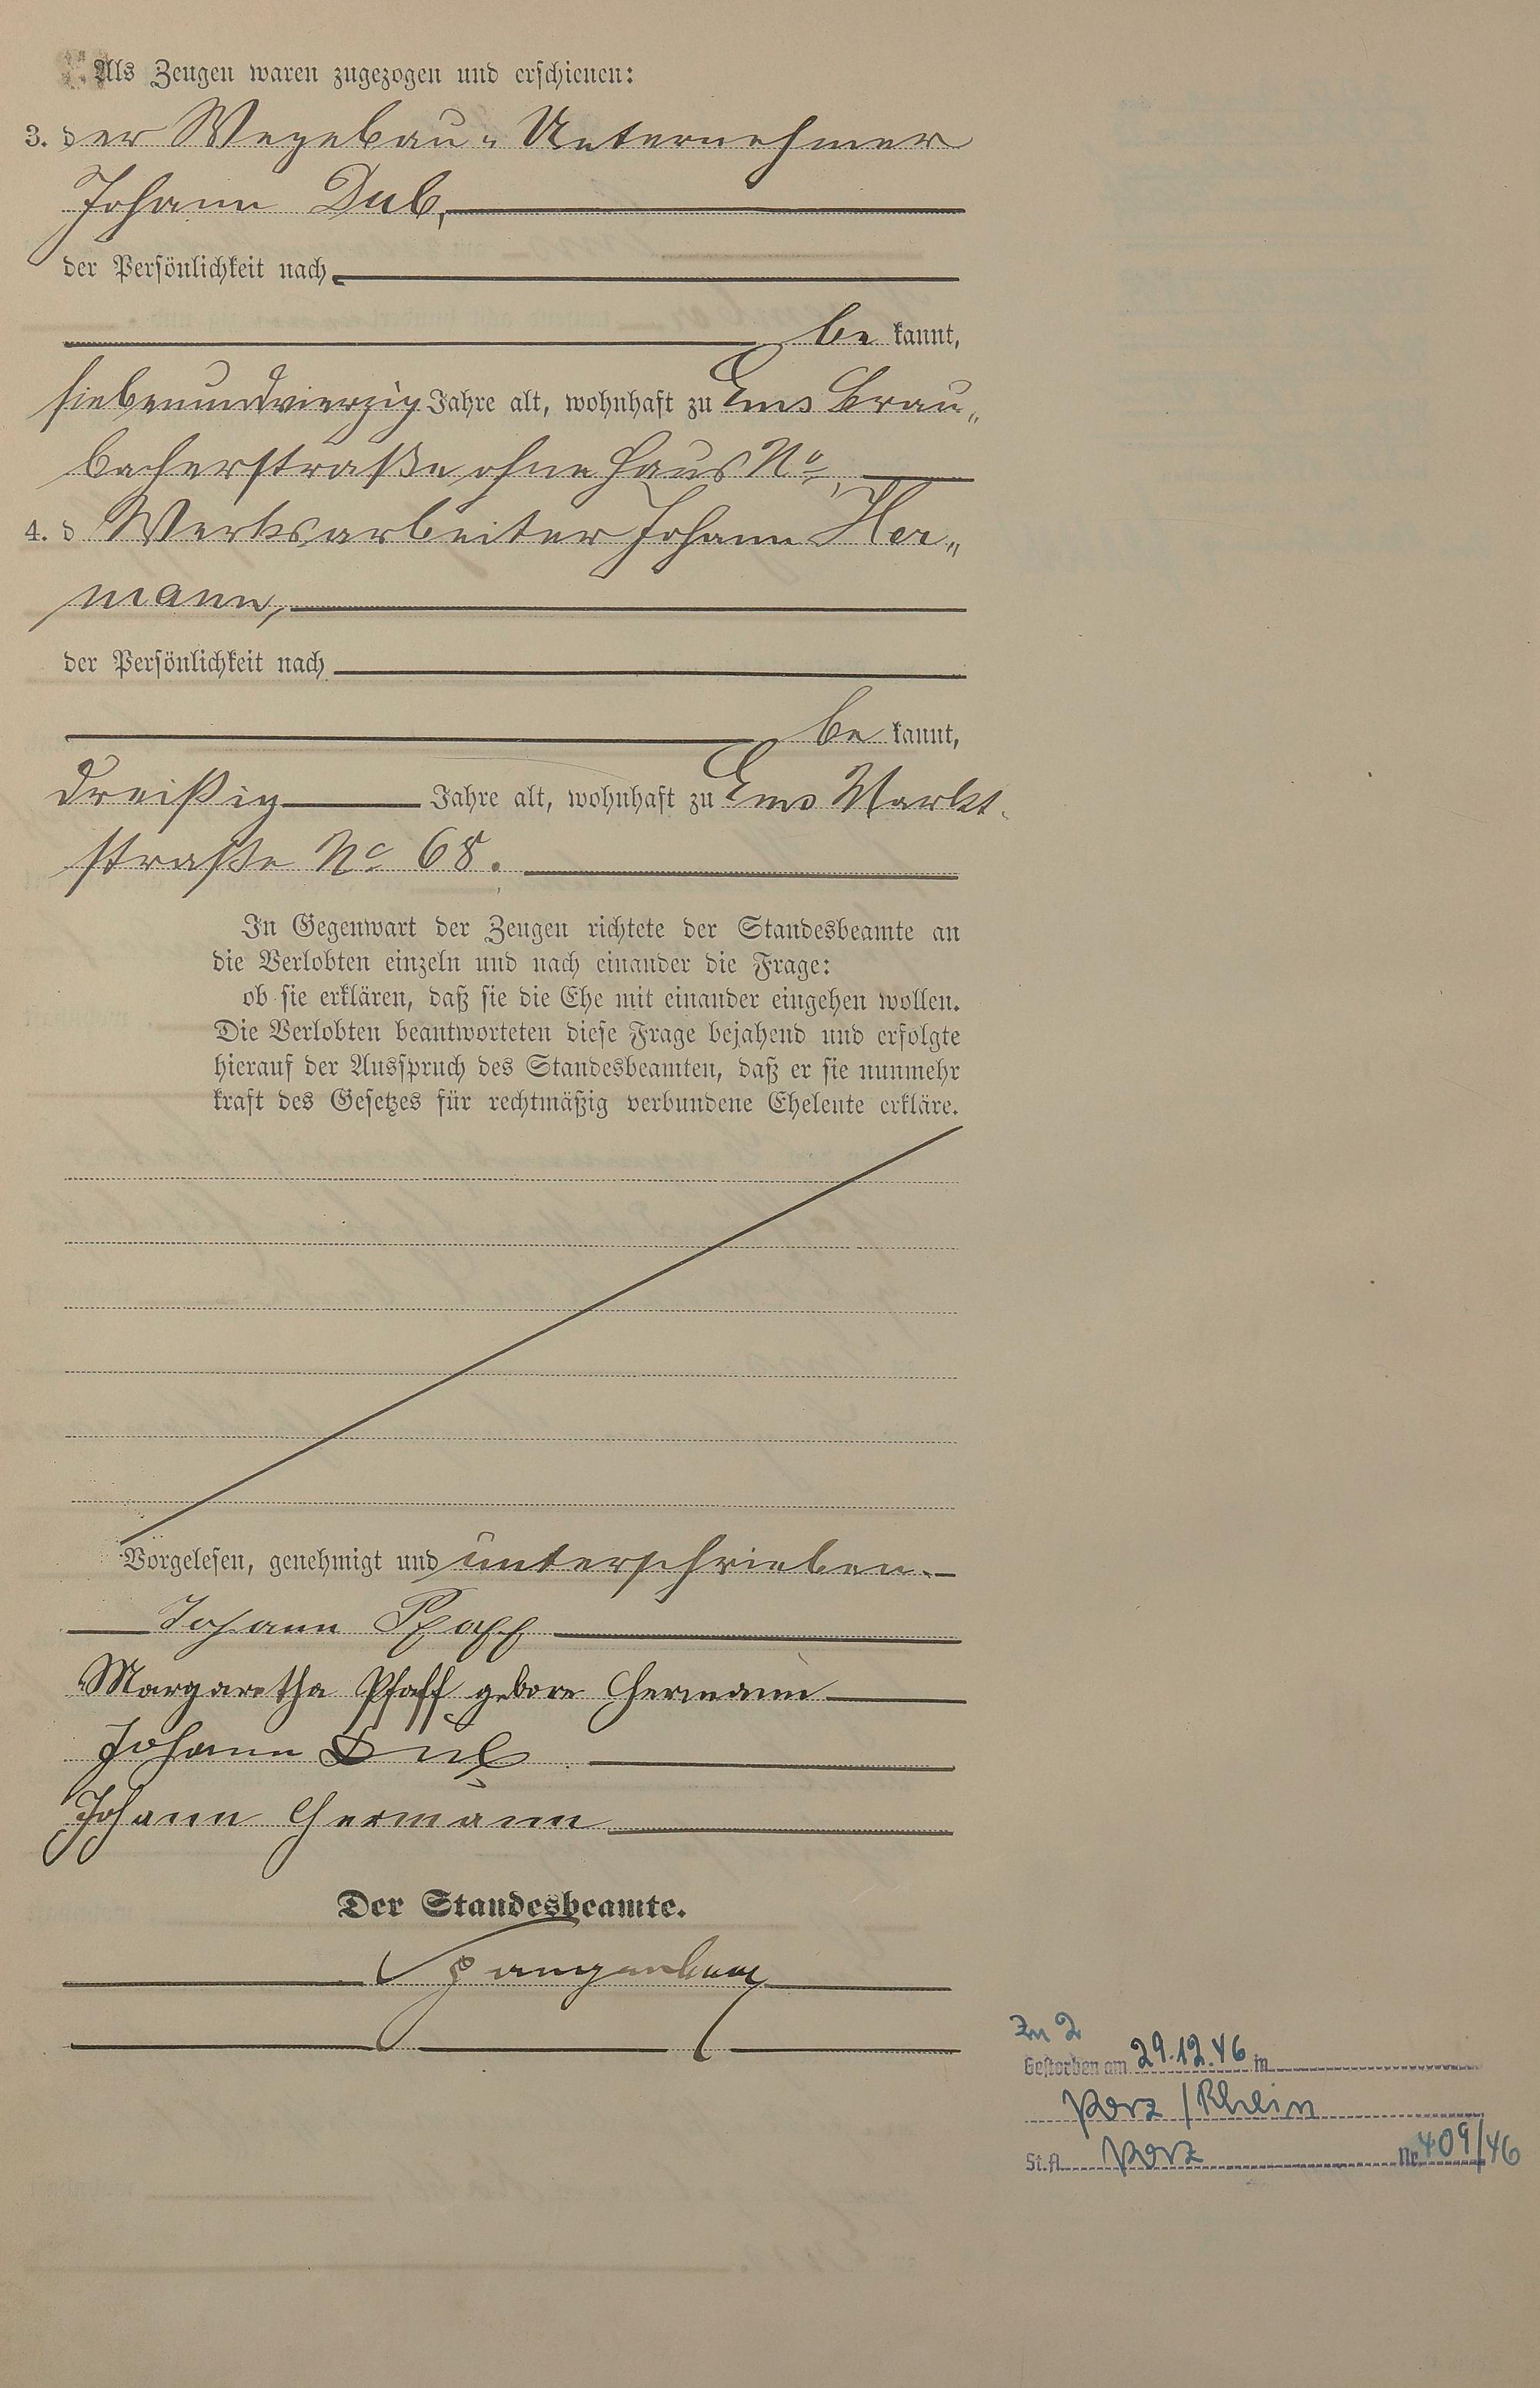 Als Zeugen waren zugezogen und erschienen:
3. der Wegebau-Unternehmer
Johann Dub,
der Persönlichkeit nach
be kannt,
siebenundvierzig Jahre alt, wohnhaft zu Ems Brau„
bacherstraße ohne Haus No,
4. d Werksarbeiter Johann Her„
mann,
der Persönlichkeit nach
be kannt,
dreißig Jahre alt, wohnhaft zu Ems Markt
straße No 68.
In Gegenwart der Zeugen richtete der Standesbeamte an
die Verlobten einzeln und nach einander die Frage:
ob sie erklären, daß sie die Ehe mit einander eingehen wollen.
Die Verlobten beantworteten diese Frage bejahend und erfolgte
hierauf der Ausspruch des Standesbeamten, daß er sie nunmehr
kraft des Gesetzes für rechtmäßig verbundene Eheleute erkläre.
Vorgelesen, genehmigt und unterschrieben.
Johann Pfaff
Margaretha Pfaff gebore Hermann
Johann Dub
Johann Hermann
Der Standesbeamte.
Zu 2
Gestorben am 29.12.46 in
Porz / Rhein
St.A. Porz Nr. 409/46